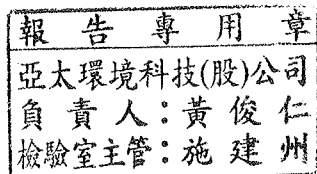 報告專用章
亞太環境科技(股)公司
負責人：黃俊仁
檢驗室主管：施建州